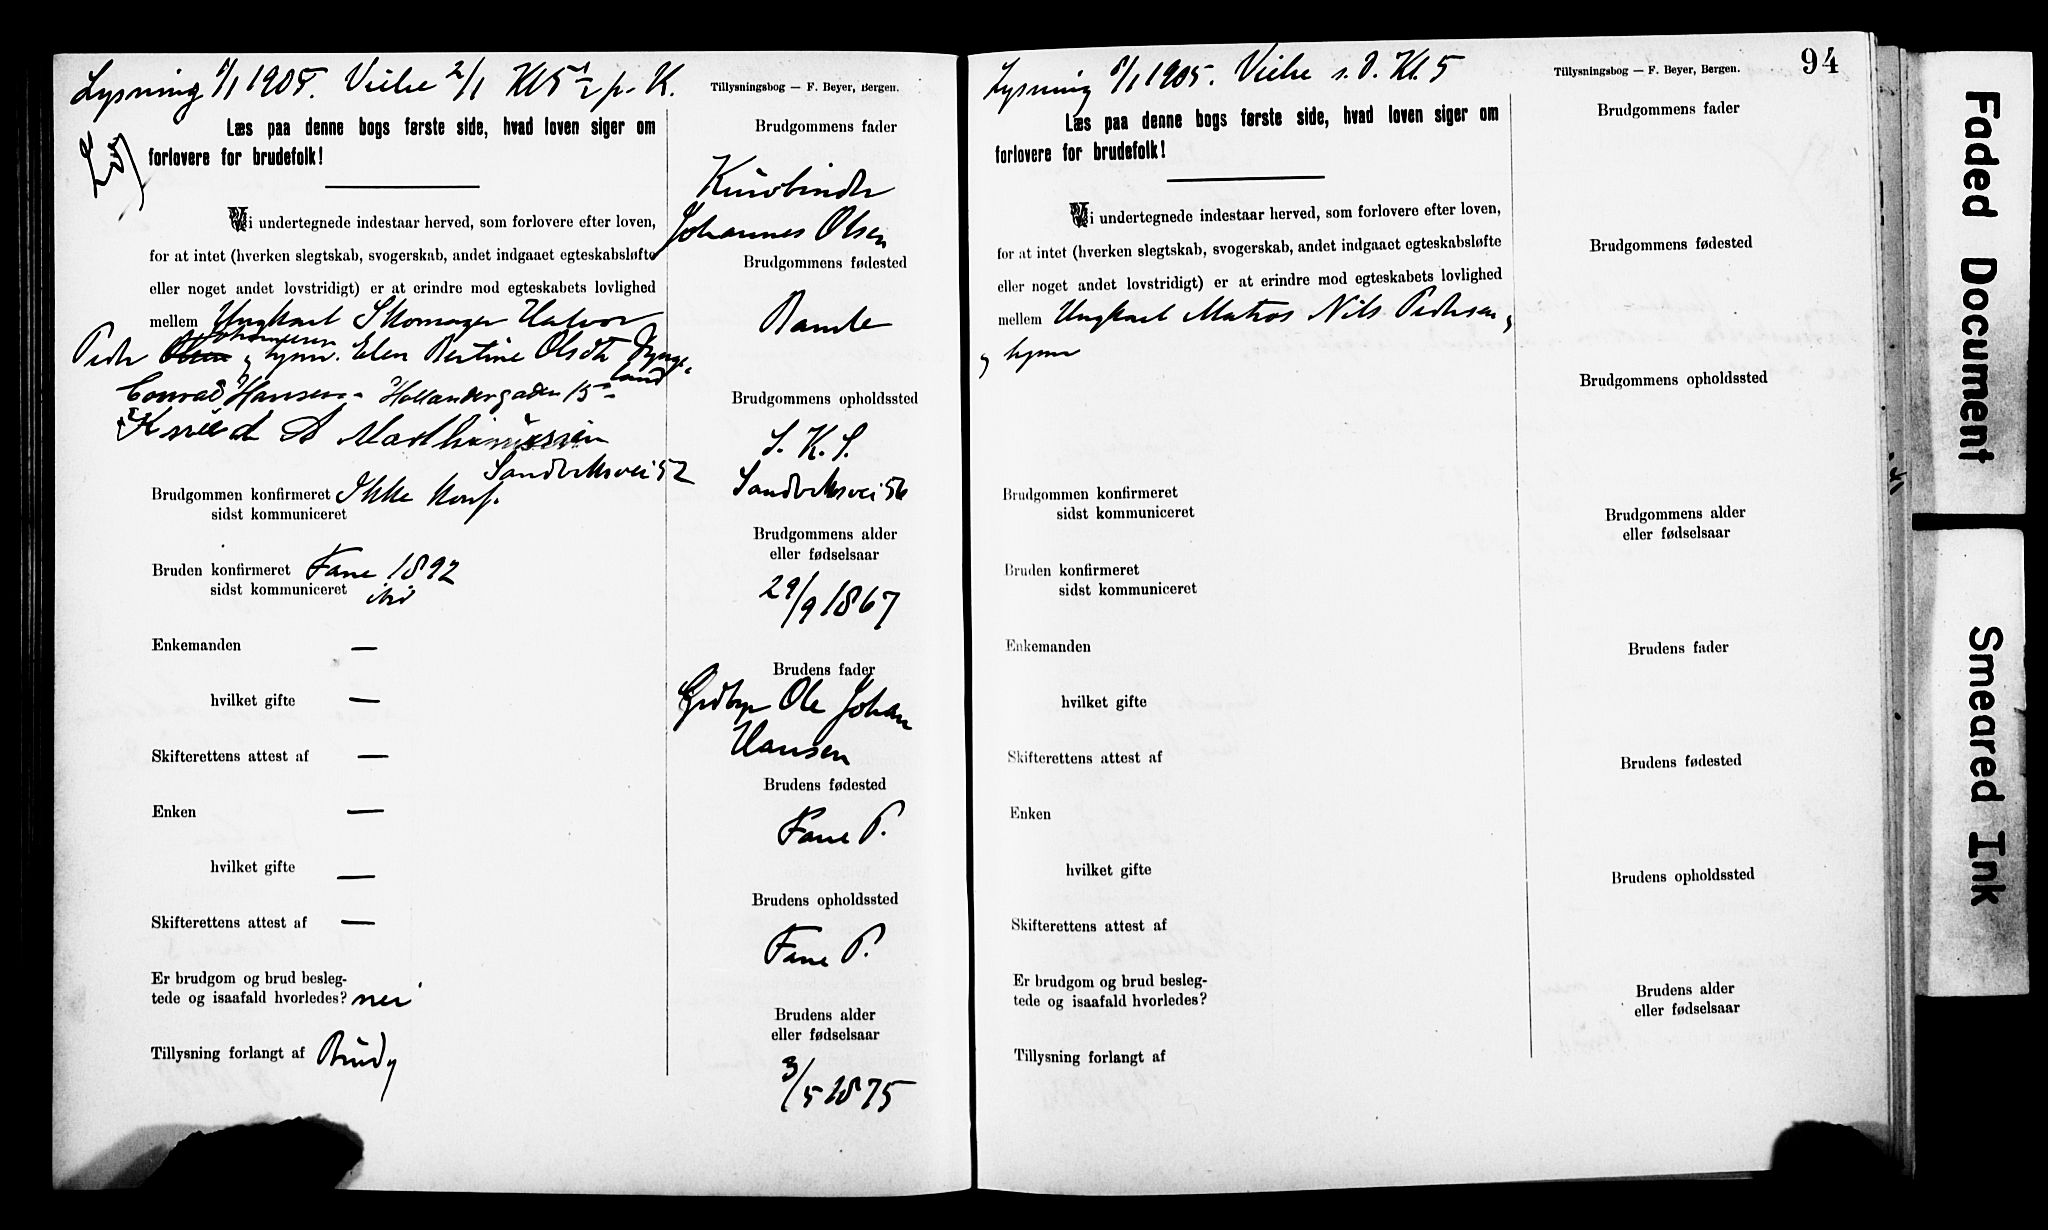 Lysning 8/1 1905. Vielse 2/1 Kl 5 1/2 p. K.
Tillysningsbog — F. Beyer, Bergen.
Læs paa denne bogs første side, hvad loven siger om
forlovere for brudefolk!
Vi undertegnede indestaar herved, som forlovere efter loven,
for at intet (hverken slegtskab, svogerskab, andet indgaaet egteskabsløfte
eller noget andet lovstridigt) er at erindre mod egteskabets lovlighed
mellem Ungkarl Skomager Halvor
Johannesen
Peder Olsen og Pige. Elen Bertine Olsdtr
Conrad Hansen - Hollændergaden 15
Knud A Mathiassen
Sandviksvei 52
Brudgommen konfirmeret Ikke konf.
sidst kommuniceret
Bruden konfirmeret Fane 1892
sidst kommuniceret ibid
Enkemanden —
hvilket gifte —
Skifterettens attest af —
Enken —
hvilket gifte —
Skifterettens attest af —
Er brudgom og brud besleg-
tede og isaafald hvorledes? nei
Tillysning forlangt af Brudg
Brudgommens fader
Johannes Olsen
Brudgommens fødested
Bamle
Brudgommens opholdssted
S. K. S.
Sandviksvei 56
Brudgommens alder
eller fødselsaar
29/9 1867
Brudens fader
Ole Johan
Hansen
Brudens fødested
Fane P.
Brudens opholdssted
Fane P.
Brudens alder
eller fødselsaar
3/5 1875
Lysning 8/1 1905. Vielse s. D. Kl. 5
Tillysningsbog — F. Beyer, Bergen.
94
Læs paa denne bogs første side, hvad loven siger om
forlovere for brudefolk!
Vi undertegnede indestaar herved, som forlovere efter loven,
for at intet (hverken slegtskab, svogerskab, andet indgaaet egteskabsløfte
eller noget andet lovstridigt) er at erindre mod egteskabets lovlighed
mellem Ungkarl Matros Nils Pedersen
og
Brudgommen konfirmeret
sidst kommuniceret
Bruden konfirmeret
sidst kommuniceret
Enkemanden
hvilket gifte
Skifterettens attest af
Enken
hvilket gifte
Skifterettens attest af
Er brudgom og brud besleg-
tede og isaafald hvorledes?
Tillysning forlangt af
Brudgommens fader
Brudgommens fødested
Brudgommens opholdssted
Brudgommens alder
eller fødselsaar
Brudens fader
Brudens fødested
Brudens opholdssted
Brudens alder
eller fødselsaar
Faded Document
Smeared Ink